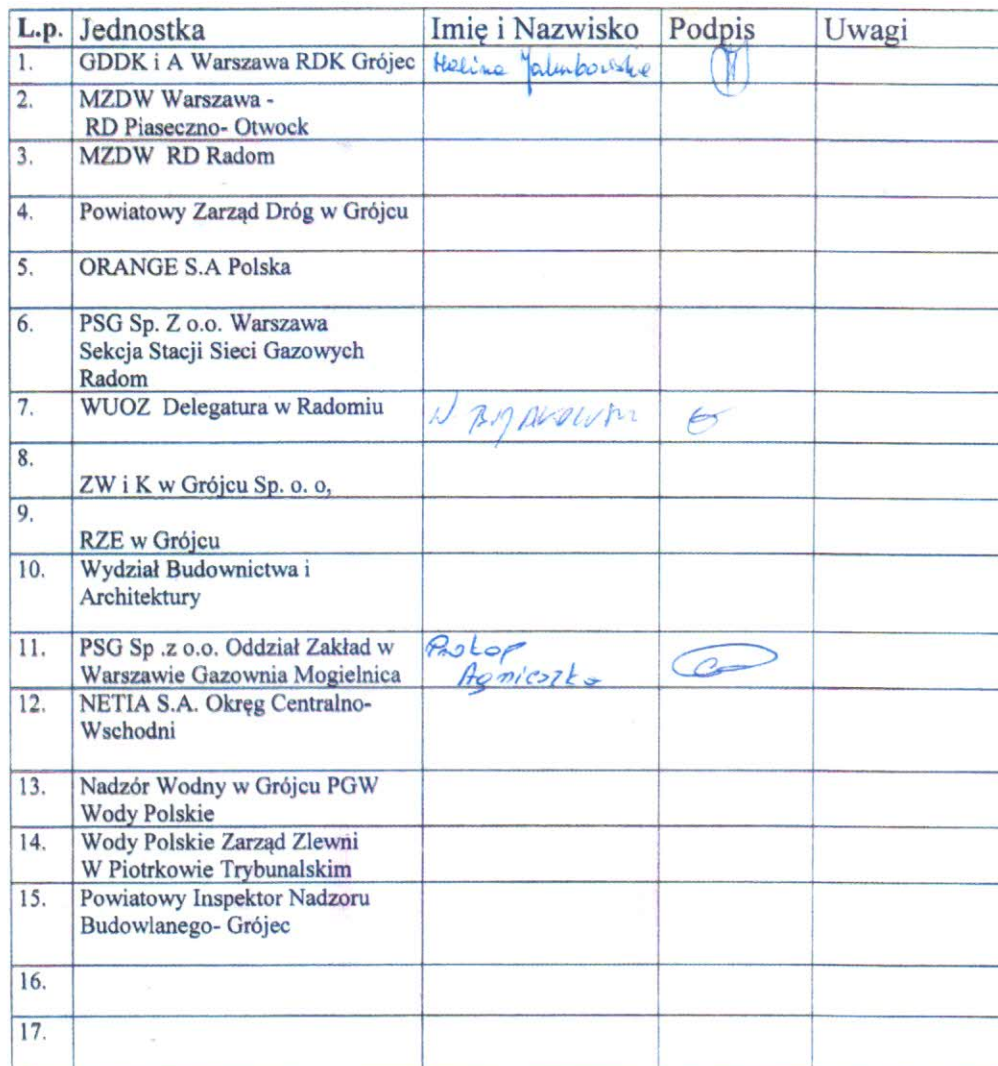 L.p. Jednostka Imię i Nazwisko Podpis Uwagi
1. GDDK i A Warszawa RDK Grójec Halina Jakubowska
2. MZDW Warszawa -
RD Piaseczno- Otwock
3. MZDW RD Radom
4. Powiatowy Zarząd Dróg w Grójcu
5. ORANGE S.A Polska
6. PSG Sp. Z o.o. Warszawa
Sekcja Stacji Sieci Gazowych
Radom
7. WUOZ Delegatura w Radomiu
8.
ZW i K w Grójcu Sp. o. o,
9.
RZE w Grójcu
10. Wydział Budownictwa i
Architektury
11. PSG Sp .z o.o. Oddział Zakład w Prokop
Warszawie Gazownia Mogielnica Agnieszka
12. NETIA S.A. Okręg Centralno-
Wschodni
13. Nadzór Wodny w Grójcu PGW
Wody Polskie
14. Wody Polskie Zarząd Zlewni
W Piotrkowie Trybunalskim
15. Powiatowy Inspektor Nadzoru
Budowlanego- Grójec
16.
17.